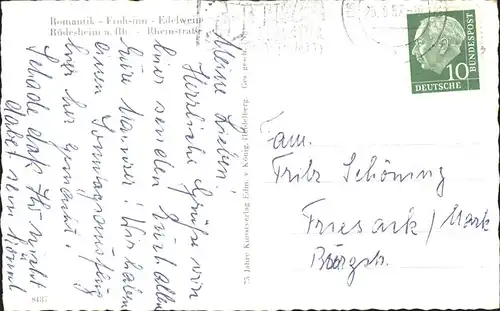 Romantik - Frohsinn - Edelwein
Rüdesheim a. Rh. - Rheinstraße
Meine Lieben!
Herrliche Grüße von
hier senden Euch allen
Eure Wir haben
einen Sonntagsausflug
hier her gemacht.
Schade daß Ihr nicht
dabei sein könnt
8487
75 Jahre Kunstverlag Edm. v. König, Heidelberg. Ges. gesch.
25.8.57
10
DEUTSCHE
BUNDESPOST
Fam.
Fritz Schöning
Friesack/Mark
Bergstr.